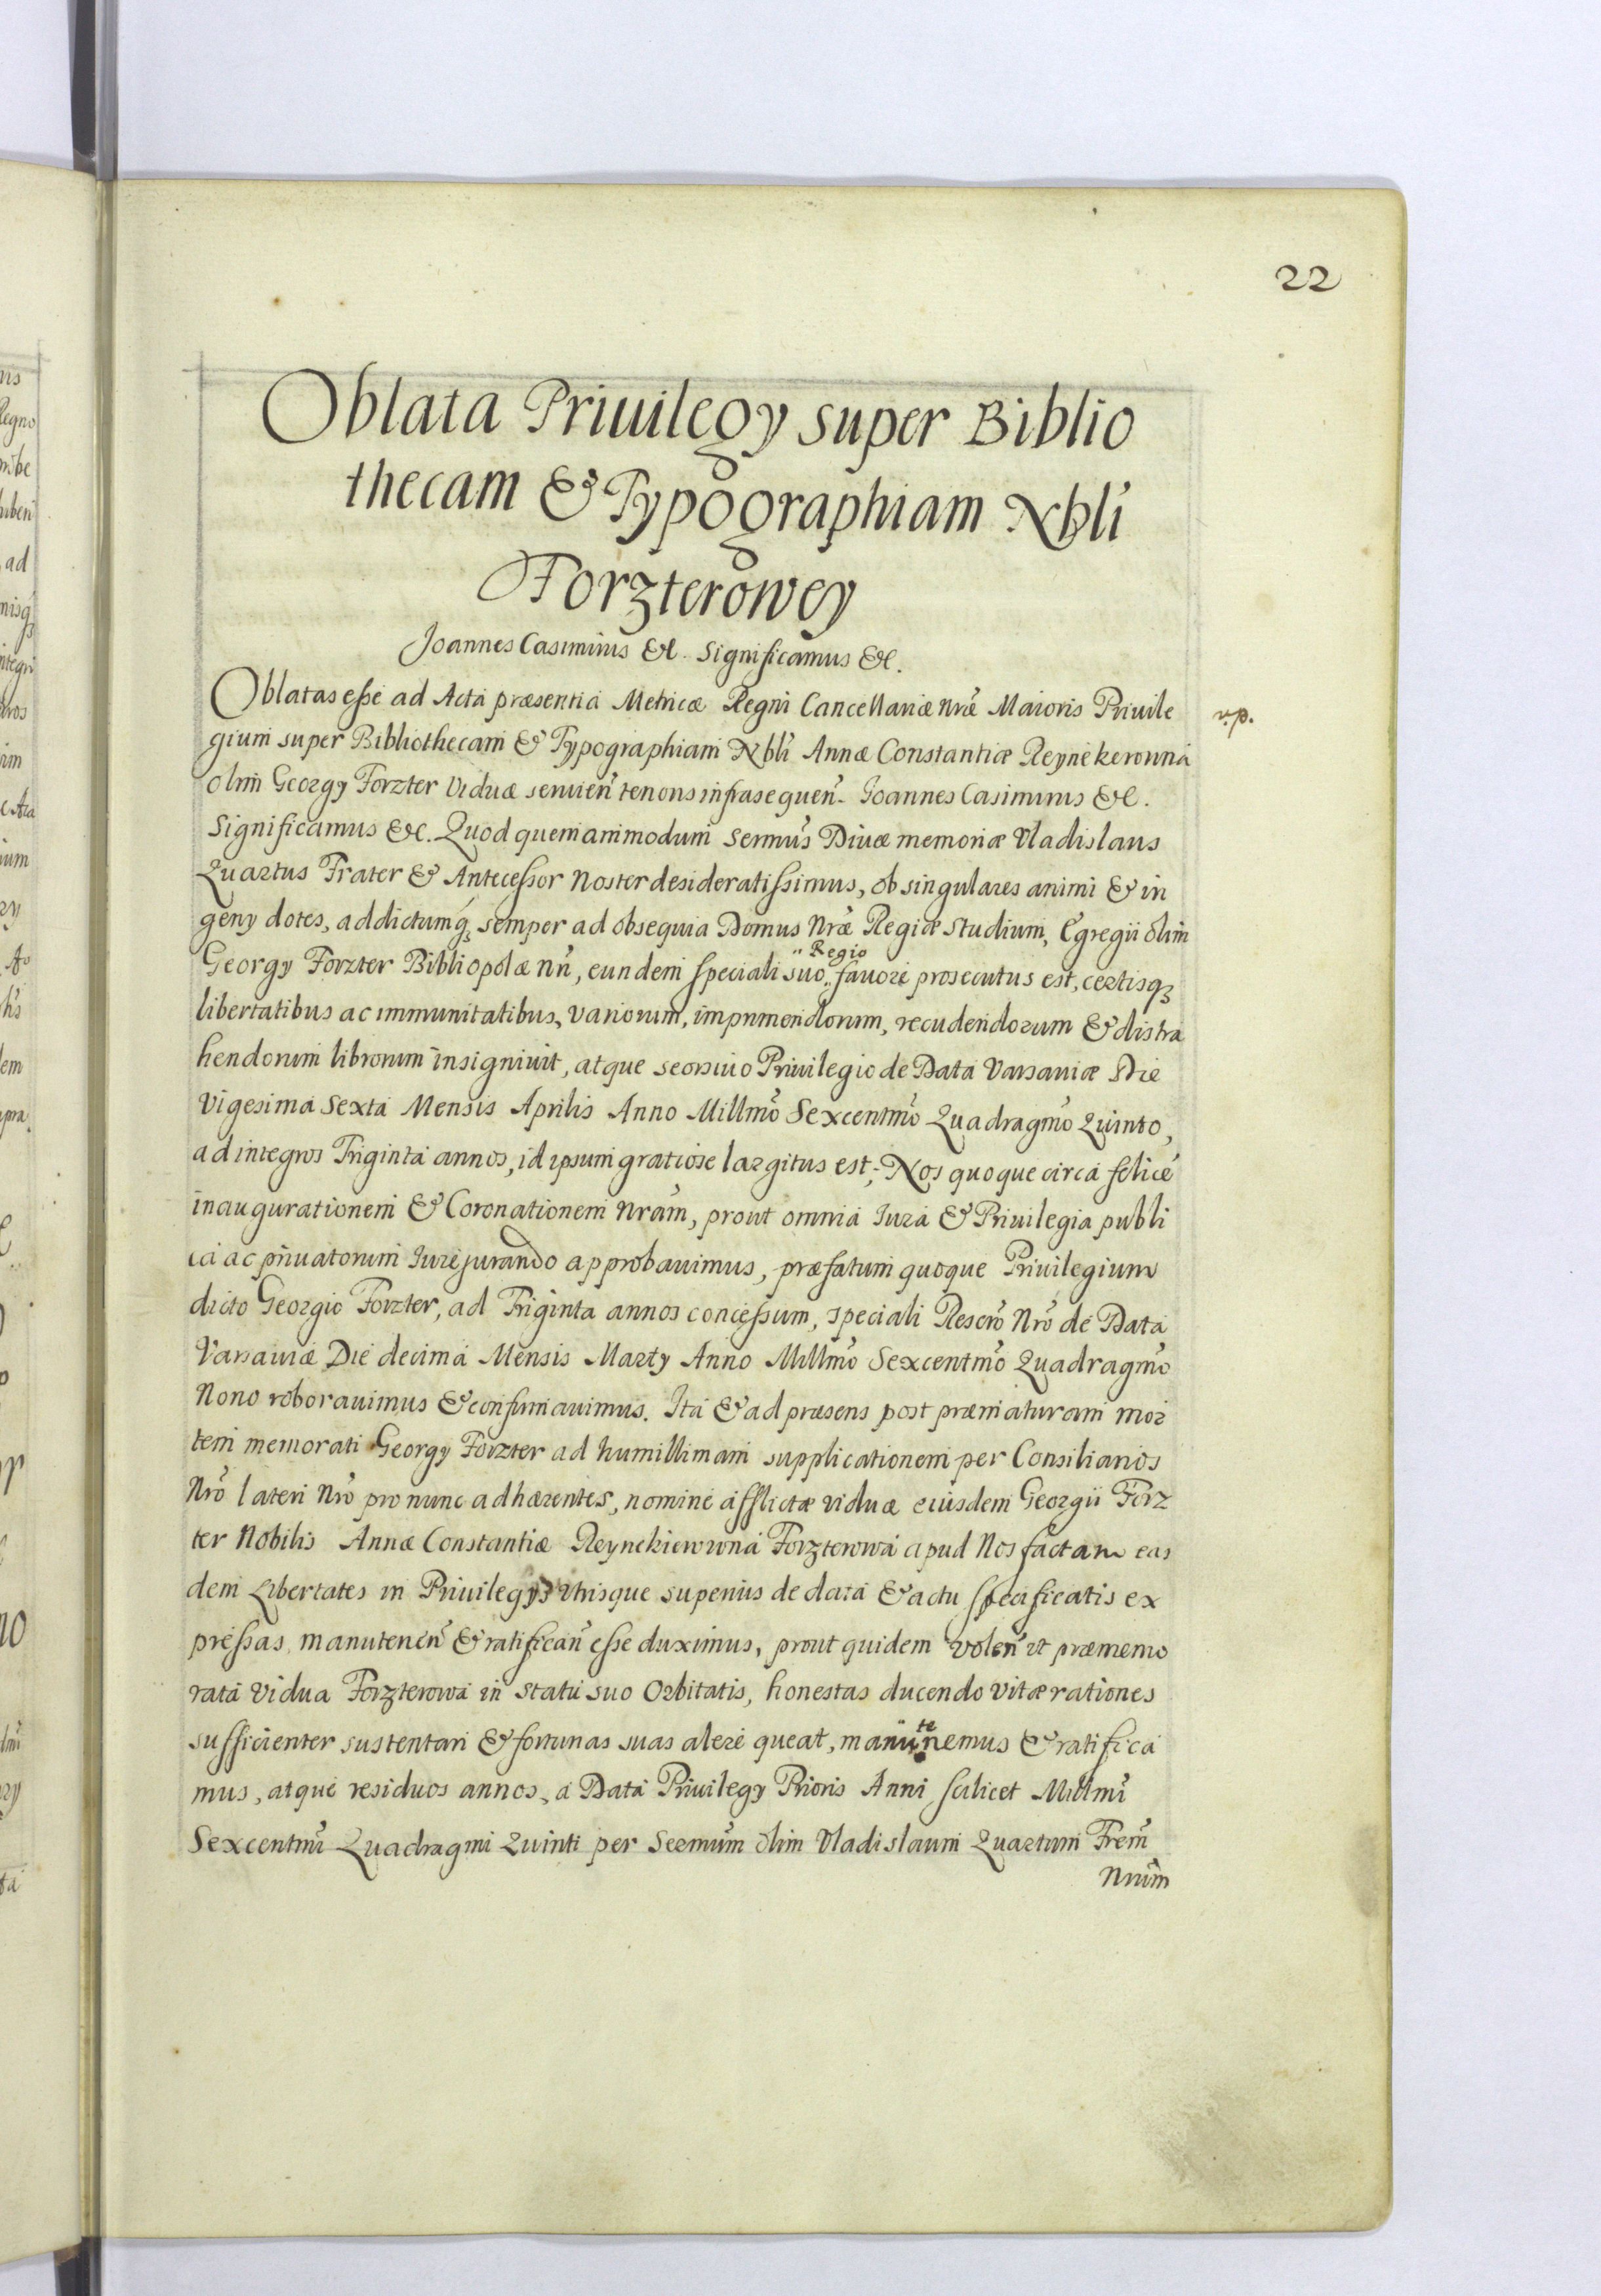 22
Oblata Priuilegy super Biblio
thecam & Typographiam Nbli
Forzterowey
Joannes Casimirus &c. Significamus &c.
Oblatas esse ad Acta præsentia Metricæ Regni Cancellariæ nræ Maioris Priuile
gium super Bibliothecam & Typographiam Nbli Annæ Constantiæ Reynekerowna
olim Georgy Forzter Viduæ seruien̄ tenoris infrasequen̄. Joannes Casimirus &c.
Significamus &c. Quod quemammodum Sermus Diuæ memoriæ Vladislaus
Quartus Frater & Antecessor Noster desideratissimus, ob singulares animi & in
geny dotes, addictumq3 semper ad obsequia Domus nræ Regiæ studium, Egregii olim
Georgy Forzter Bibliopolæ nri, eundem speciali suo Regio fauore prosecutus est, certisq3
libertatibus ac immunitatibus, variorum, imprimendorum, recudendorum & distra
hendorum librorum insigniuit, atque seorsiuo Priuilegio de Data Varsauiæ Die
Vigesima Sexta Mensis Aprilis Anno Millmo Sexcentmo Quadragmo Quinto,
ad integros Triginta annos, id ipsum gratiose largitus est; Nos quoque circa felicē
inaugurationem & Coronationem nram, prout omnia Iura & Priuilegia publi
ca ac priuatorum Iurejurando approbauimus, præfatum quoque Priuilegium
dicto Georgio Forzter, ad Triginta annos concessum, speciali Rescro Nro de Data
Varsauiæ Die decima Mensis Marty Anno Millmo Sexcentmo Quadragmo
Nono roborauimus & confirmauimus. Ita & ad præsens post præmaturam mor
tem memorati Georgy Forzter ad humillimam supplicationem per Consiliarios
Nro lateri Nro pro nunc adhærentes, nomine afflictæ viduæ eiusdem Georgii Forz
ter Nobilis Annæ Constantiæ Reynekiewwna Forzterowa apud Nos factam eas
dem Libertates in Priuilegys vtrisque superius de data & actu specificatis ex
pressas, manutenen̄ & ratifican̄ esse duximus, prout quidem volen̄ vt præmemo
rata Vidua Forzterowa in statu suo Orbitatis, honestas ducendo vitæ rationes
sufficienter sustentari & fortunas suas alere queat, manutenemus & ratifica
mus, atque residuos annos, a Data Priuilegy Prioris Anni scilicet Millmi
Sexcentmi Quadragmi Quinti per Sermum olim Vladislaum Quartum Frem
Nrum